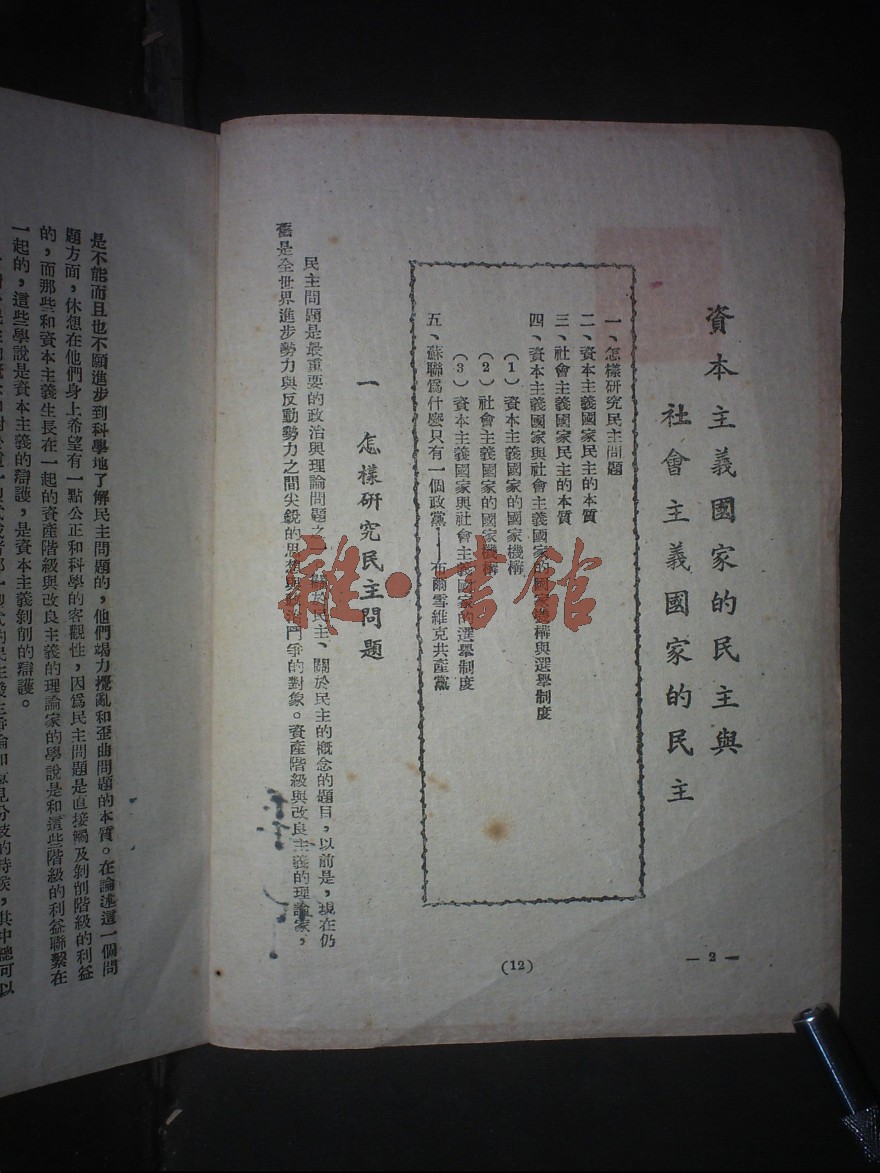 資本主義國家的民主與
社會主義國家的民主
一、怎樣研究民主問題
二、資本主義國家民主的本質
三、社會主義國家民主的本質
四、資本主義國家與社會主義國家的國家機構與選舉制度
(1)資本主義國家的國家機構
(2)社會主義國家的國家機構
(3)資本主義國家與社會主義國家的選舉制度
五、蘇聯爲什麼只有一個政黨——布爾雪維克共產黨
一 怎樣研究民主問題
民主問題是最重要的政治與理論問題之 關於民主、關於民主的概念的題目,以前是,現在仍
舊是全世界進步勢力與反動勢力之間尖銳的思想與政治鬥爭的對象。資產階級與改良主義的理論家,
— 2 —
(12)
雜·書館
是不能而且也不願進步到科學地了解民主問題的,他們竭力擾亂和歪曲問題的本質。在論述這一個問
題方面,休想在他們身上希望有一點公正和科學的客觀性,因爲民主問題是直接觸及剝削階級的利益
的,而那些和資本主義生長在一起的資產階級與改良主義的理論家的學說是和這些階級的利益聯繫在
一起的,這些學說是資本主義的辯護,是資本主義剝削的辯護。